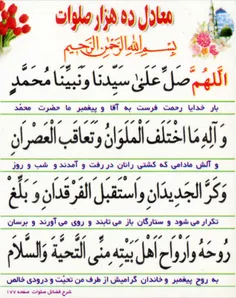 معادل ده هزار صلوات
بِسْمِ اللهِ الرَّحْمٰنِ الرَّحِیمِ
اَللّهُمَّ صَلِّ عَلیٰ سَیِّدِنا وَ نَبِیِّنا مُحَمَّدٍ
بار خدایا رحمت فرست به آقا و پیغمبر ما حضرت محمّد
وَ آلِهِ مَا اخْتَلَفَ الْمَلَوَانِ وَ تَعاقَبَ الْعَصْرانِ
و آلش مادامی که کشتی رانان در رفت و آمدند و شب و روز
وَ کَرَّ الْجَدِیدانِ وَ اسْتَقْبَلَ الْفَرْقَدانِ وَ بَلِّغْ
تکرار می شود و ستارگان باز می تابند و روی می آورند و برسان
رُوحَهُ وَ اَرْواحَ اَهْلِ بَیْتِهِ مِنِّی التَّحِیَّةَ وَ السَّلامَ
به روح پیغمبر و خاندان گرامیش از طرف من تحیّت و درودی خالص
شرح فضائل صلوات صفحه ۱۷۷